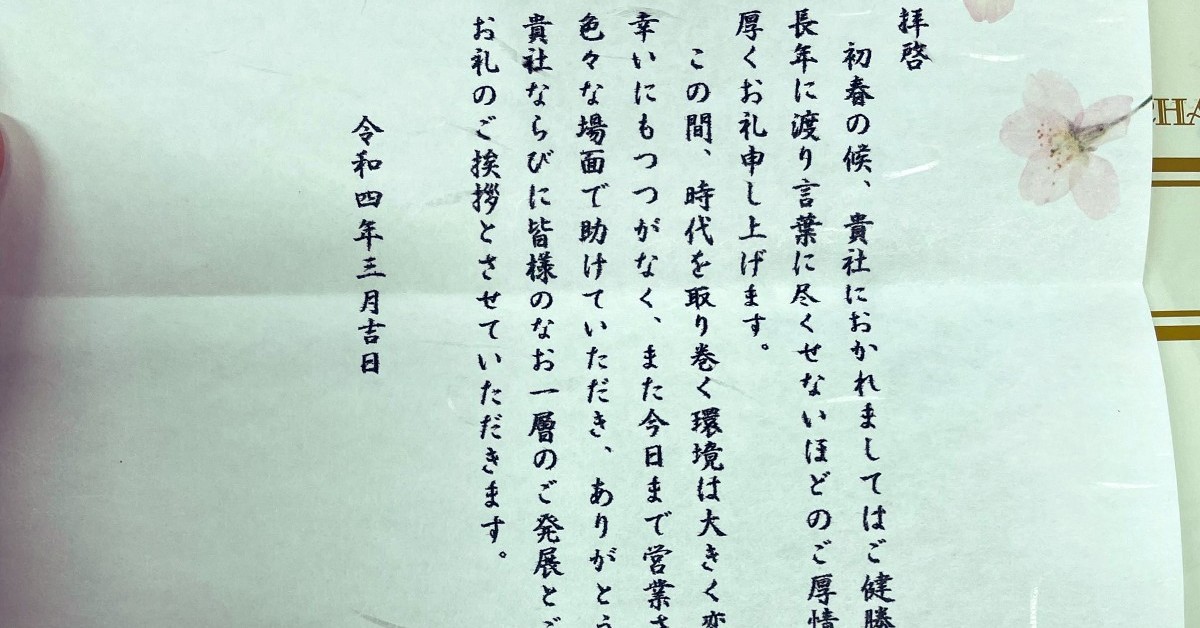 拝啓
初春の候、貴社におかれましてはご健勝
長年に渡り言葉に尽くせないほどのご厚情
厚くお礼申し上げます。
この間、時代を取り巻く環境は大きく変
幸いにもつつがなく、また今日まで営業さ
色々な場面で助けていただき、ありがとう
貴社ならびに皆様のなお一層のご発展とご
お礼のご挨拶とさせていただきます。
令和四年三月吉日
HA